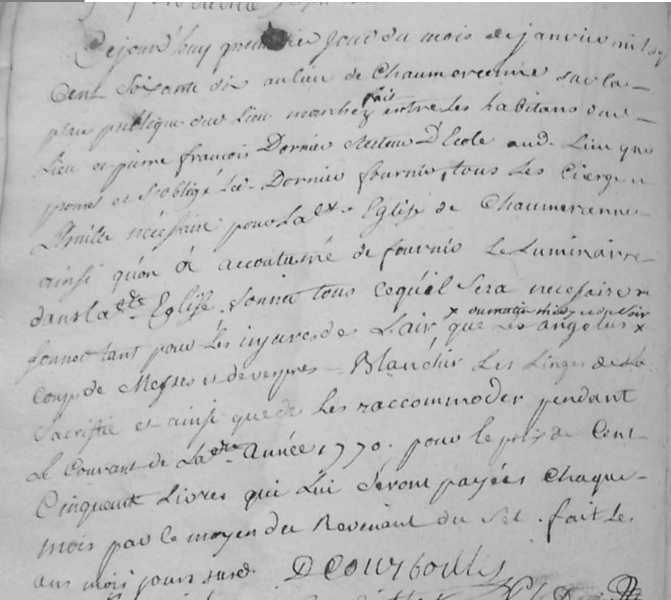 Cejourd'huy premier jour du mois de janvier mil sept
Cent soixante dix au lieu de Chaumercenne sur la
place publique dud Lieu marchez fais entre les habitans dud
Lieu et pierre francois Dornier Recteur D'Ecole aud. Lieu que
promet et s'oblige Led. Dornier fournir tous Les Cierges et
L'huille nécessaire pour La de Eglise de Chaumercenne
ainsi qu'on à accoutumé de fournir Le Luminaire
dans la de Eglise, sonner tous ce qu'il sera necessaire
sonner tant pour Les injures de L'air que Les angelus
x au matin midy et du soir
Coups de Messes et de vepres Blanchir Les Linges de la
Sacristie et ainsi que de les raccommoder pendant
Le Courant de La de Année 1770. pour le prix de Cent
Cinquant Livres qui Lui seront payées chaque
mois par le moyen du Revenant du sel. fait Les
an mois jours susd. D Courboulis